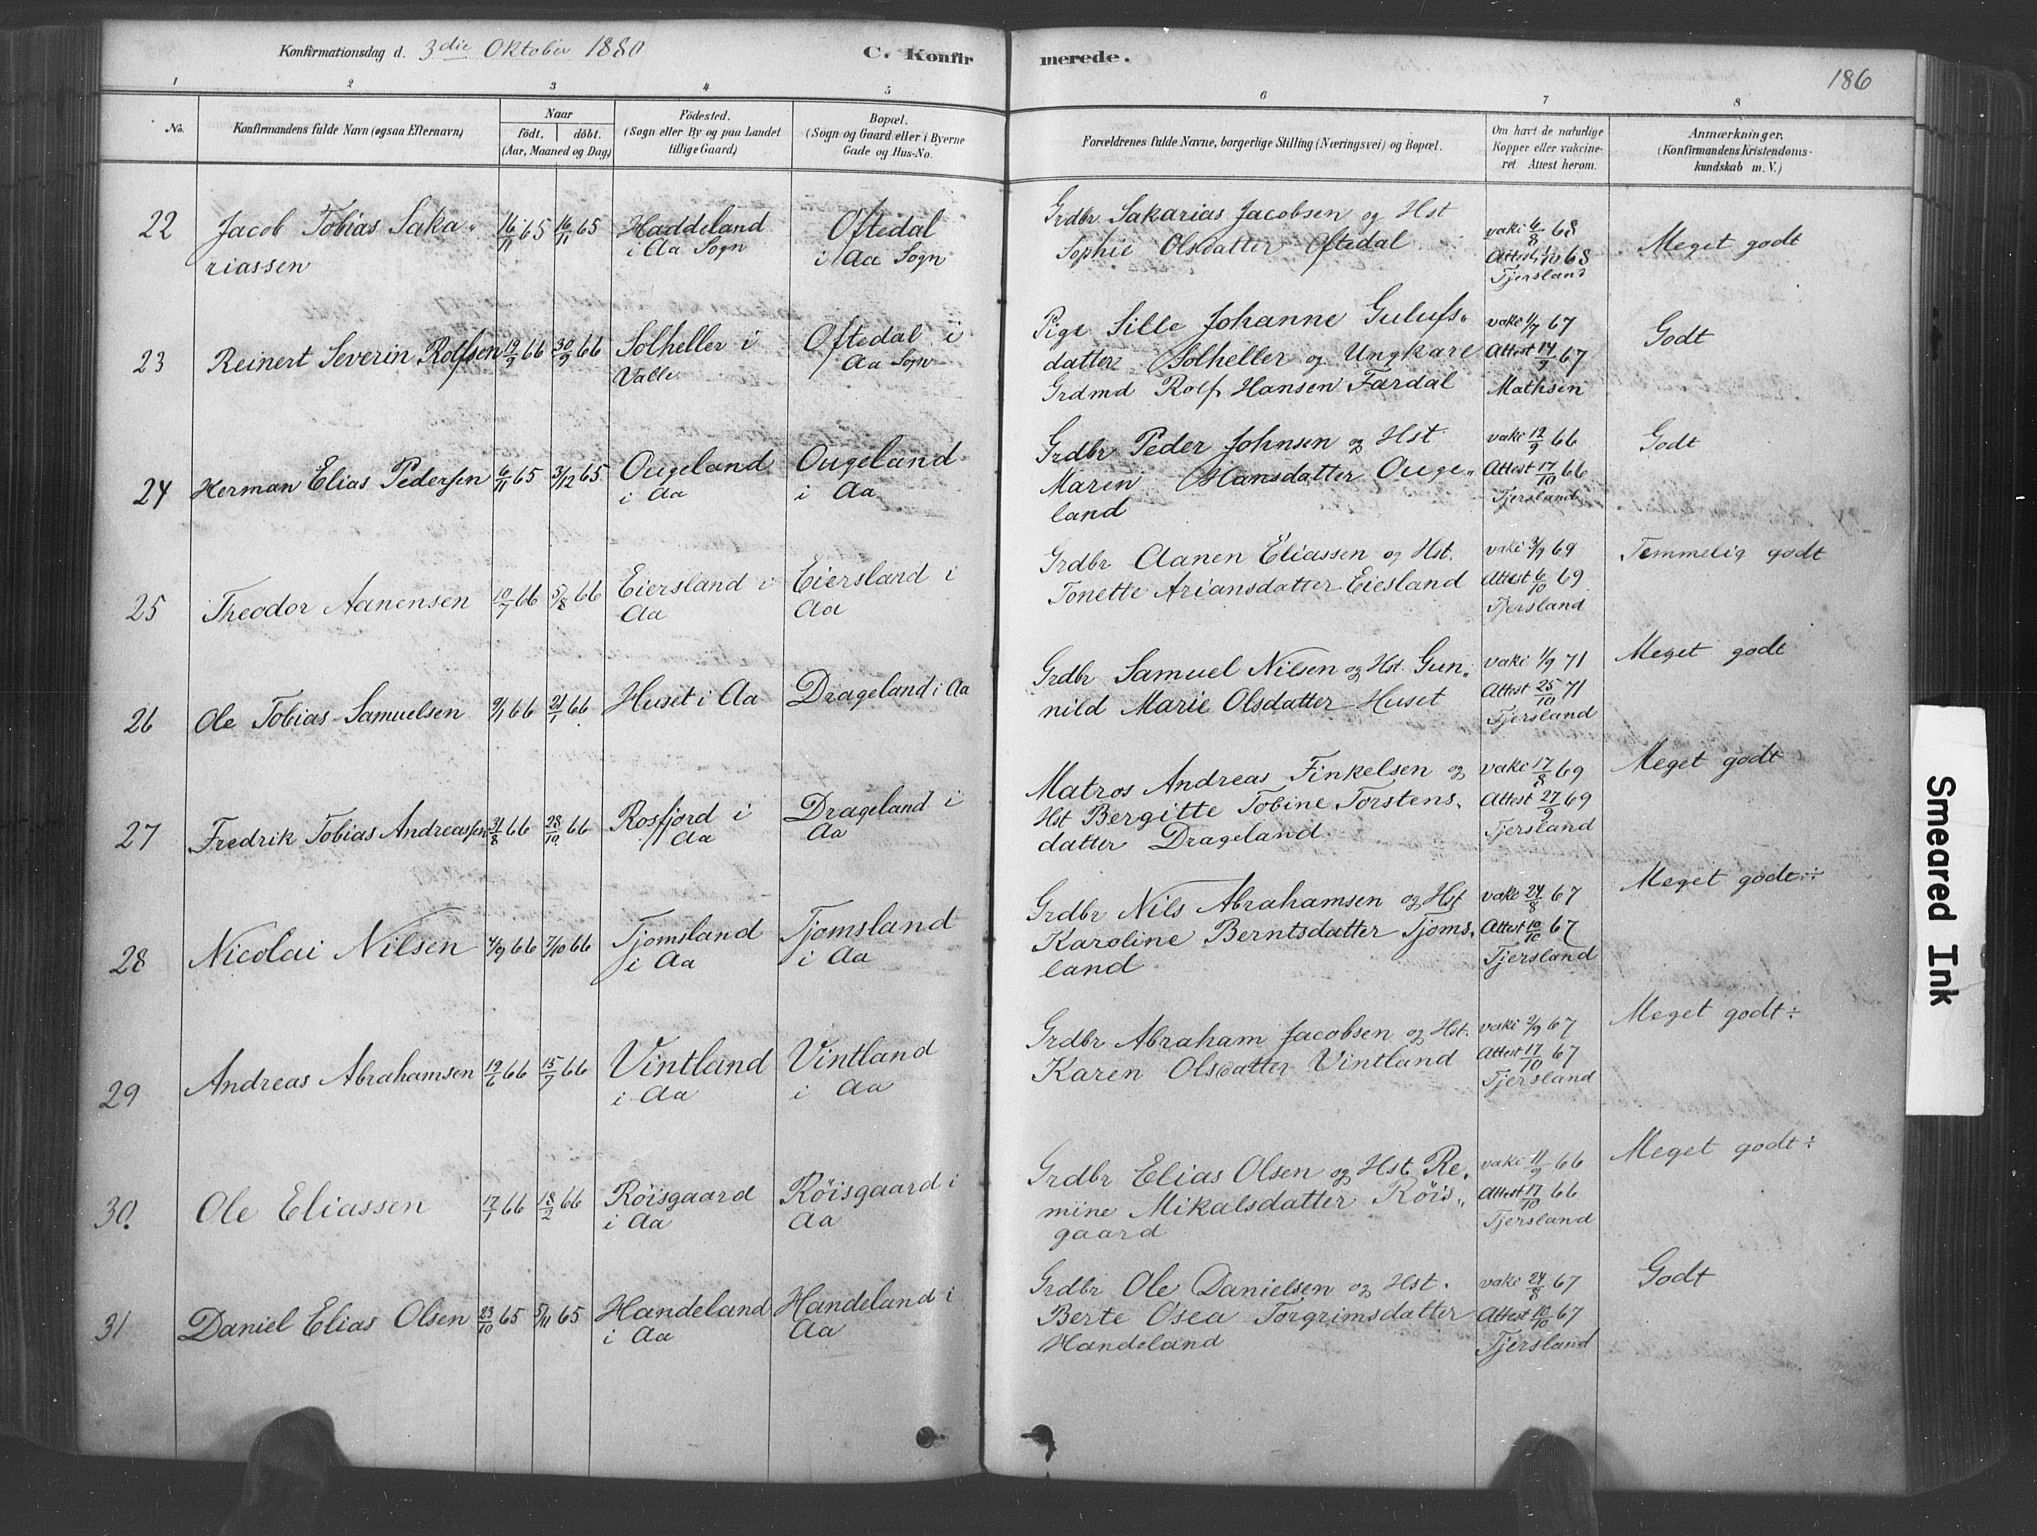 Konfirmationsdag d. 3die Oktober 1880
C. Konfirmerede.
186
1 2 3 4 5 6 7 8
No.
Konfirmandens fulde Navn (ogsaa Efternavn)
Naar
födt. döbt.
(Aar, Maaned og Dag)
Födested.
(Sogn eller By og paa Landet
tillige Gaard)
Bopæl.
(Sogn og Gaard eller i Byerne
Gade og Hus-No.
Forældrenes fulde Navne, borgerlige Stilling (Næringsvei) og Bopæl.
Om havt de naturlige
Kopper eller vakcine-
ret Attest herom.
Anmærkninger,
(Konfirmandens Kristendoms-
kundskab m. V.)
22 Jacob Tobias Saka-
riassen
16/11 65 16/11 65
Haddeland
i Aa Sogn
Oftedal
i Aa Sogn
Grdbr Sakarias Jacobsen og Hst
Sophie Olsdatter Oftedal
vaki 6/8 68
Attest 1/10 68
Tjersland
Meget godt
23 Reinert Severin Rolfsen
19/9 66 30/9 66
Solheller i
Valle
Oftedal i
Aa Sogn
Pige Sille Johanne Gulufs-
datter Solheller og Ungkare
Grdmd Rolf Hansen Fardal
vaki 1/7 67
Attest 14/9 67
Mathsen
Godt
24 Herman Elias Pedersen
6/11 65 3/12 65
Ougeland
i Aa
Ougeland
i Aa
Grdbr Peder Johnsen og Hst
Maren Hansdatter Ouge-
land
vaki 12/9 66
Attest 17/10 66
Tjersland
Godt
25 Theodor Aanensen
10/7 66 5/8 66
Eiersland i
Aa
Eiersland i
Aa
Grdbr Aanen Eliassen og Hst.
Tonette Ariansdatter Eiesland
vaki 3/9 69
Attest 6/10 69
Tjersland
Temmelig godt
26 Ole Tobias Samuelsen
9/1 66 21/1 66
Huset i Aa
Drageland i Aa
Grdbr Samuel Nilsen og Hst Gun-
nild Marie Olsdatter Huset
vaki 1/9 71
Attest 25/10 71
Tjersland
Meget godt
27 Fredrik Tobias Andreassen
31/8 66 28/10 66
Rosfjord i
Aa
Drageland i
Aa
Matros Andreas Finkelsen og
Hst Bergitte Tobine Torstens-
datter Drageland
vaki 17/8 69
Attest 27/9 69
Tjersland
Meget godt
28 Nicolai Nilsen
4/9 66 7/10 66
Tjomsland
i Aa
Tjomsland
i Aa
Grdbr Nils Abrahamsen og Hst
Karoline Berntsdatter Tjoms-
land
vaki 24/8 67
Attest 10/10 67
Tjersland
Meget godt ÷
29 Andreas Abrahamsen
19/6 66 15/7 66
Vintland
i Aa
Vintland
i Aa
Grdbr Abraham Jacobsen og Hst.
Karen Olsdatter Vintland
vaki 2/9 67
Attest 17/10 67
Tjersland
Meget godt ÷
30. Ole Eliassen
17/1 66 18/2 66
Röisgaard
i Aa
Röisgaard i
Aa
Grdbr Elias Olsen og Hst Re-
mine Mikalsdatter Röis-
gaard
vaki 11/9 66
Attest 17/10 66
Tjersland
Meget godt ÷
31 Daniel Elias Olsen
23/10 65 5/11 65
Handeland
i Aa
Handeland i
Aa
Grdbr Ole Danielsen og Hst.
Berte Osea Torgrimsdatter
Handeland
vaki 24/8 67
Attest 10/10 67
Tjersland
Godt
Smeared Ink